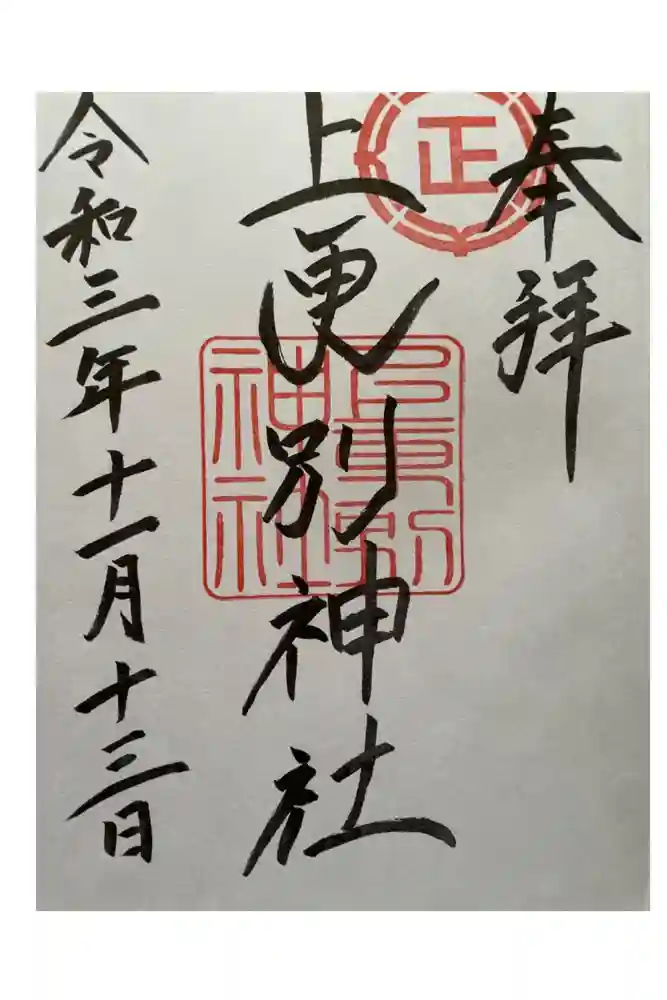 奉拝
正
上更別神社
令和三年十一月十三日